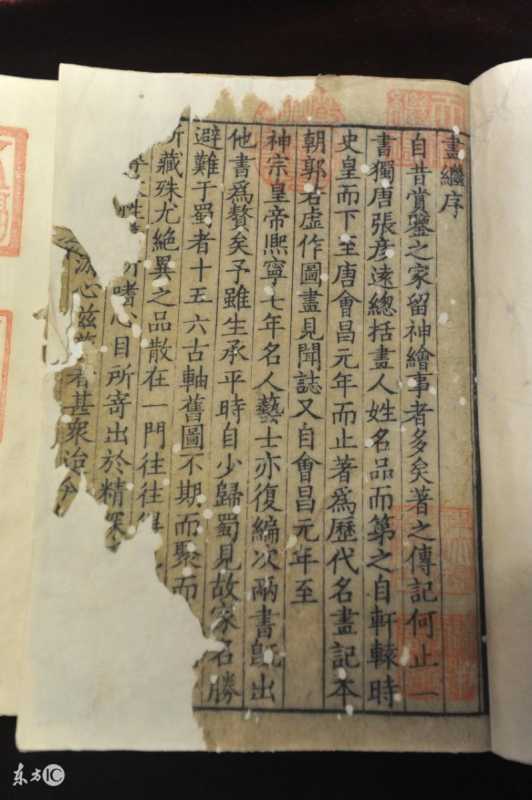 畫繼序
自昔賞鑒之家留神繪事者多矣著之傳記何止一
書獨唐張彥遠總括畫人姓名品而第之自軒轅時
史皇而下至唐會昌元年而止著爲歷代名畫記本
朝郭若虛作圖畫見聞誌又自會昌元年至
神宗皇帝熙寧七年名人藝士亦復編次兩書旣出
他書爲贅矣予雖生承平時自少歸蜀見故家名勝
避難于蜀者十五六古軸舊圖不期而聚而
所藏殊尤絕異之品散在一門往往
性所嗜心目所寄出於精深
心茲者甚衆
东方IC